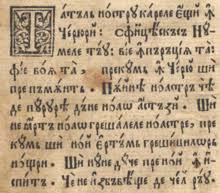 Татъль нострꙋ кареле ещй ꙟ
Черюрй: Сфинцѣскъсе Нꙋ
меле тъꙋ: віе ꙟпъръція та
фіе воѧ та, прекꙋмь ꙟ Черю шй
пре пъмѫнть. Пѫйнѣ ноастръ чѣ
де пꙋрꙋрѣ дъне ноаѡ астъзй. Шй
не ѧртъ ноаѡ грешалеле ноастре, пре
кꙋмь шй ной ертъмь грешицилѡрь
нощри. Шй нꙋ не дꙋче пре ной ꙟ и
спить. Чи не избъвѣще де чел ръꙋ.